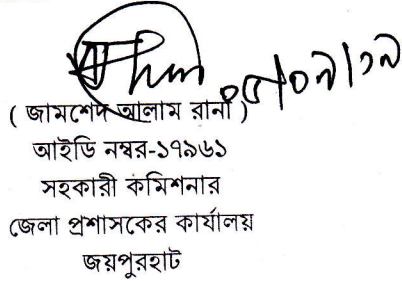 ০৫/০৯/১৯
( জামশেদ আলাম রানা )
আইডি নম্বর-১৭৯৬১
সহকারী কমিশনার
জেলা প্রশাসকের কার্যালয়
জয়পুরহাট